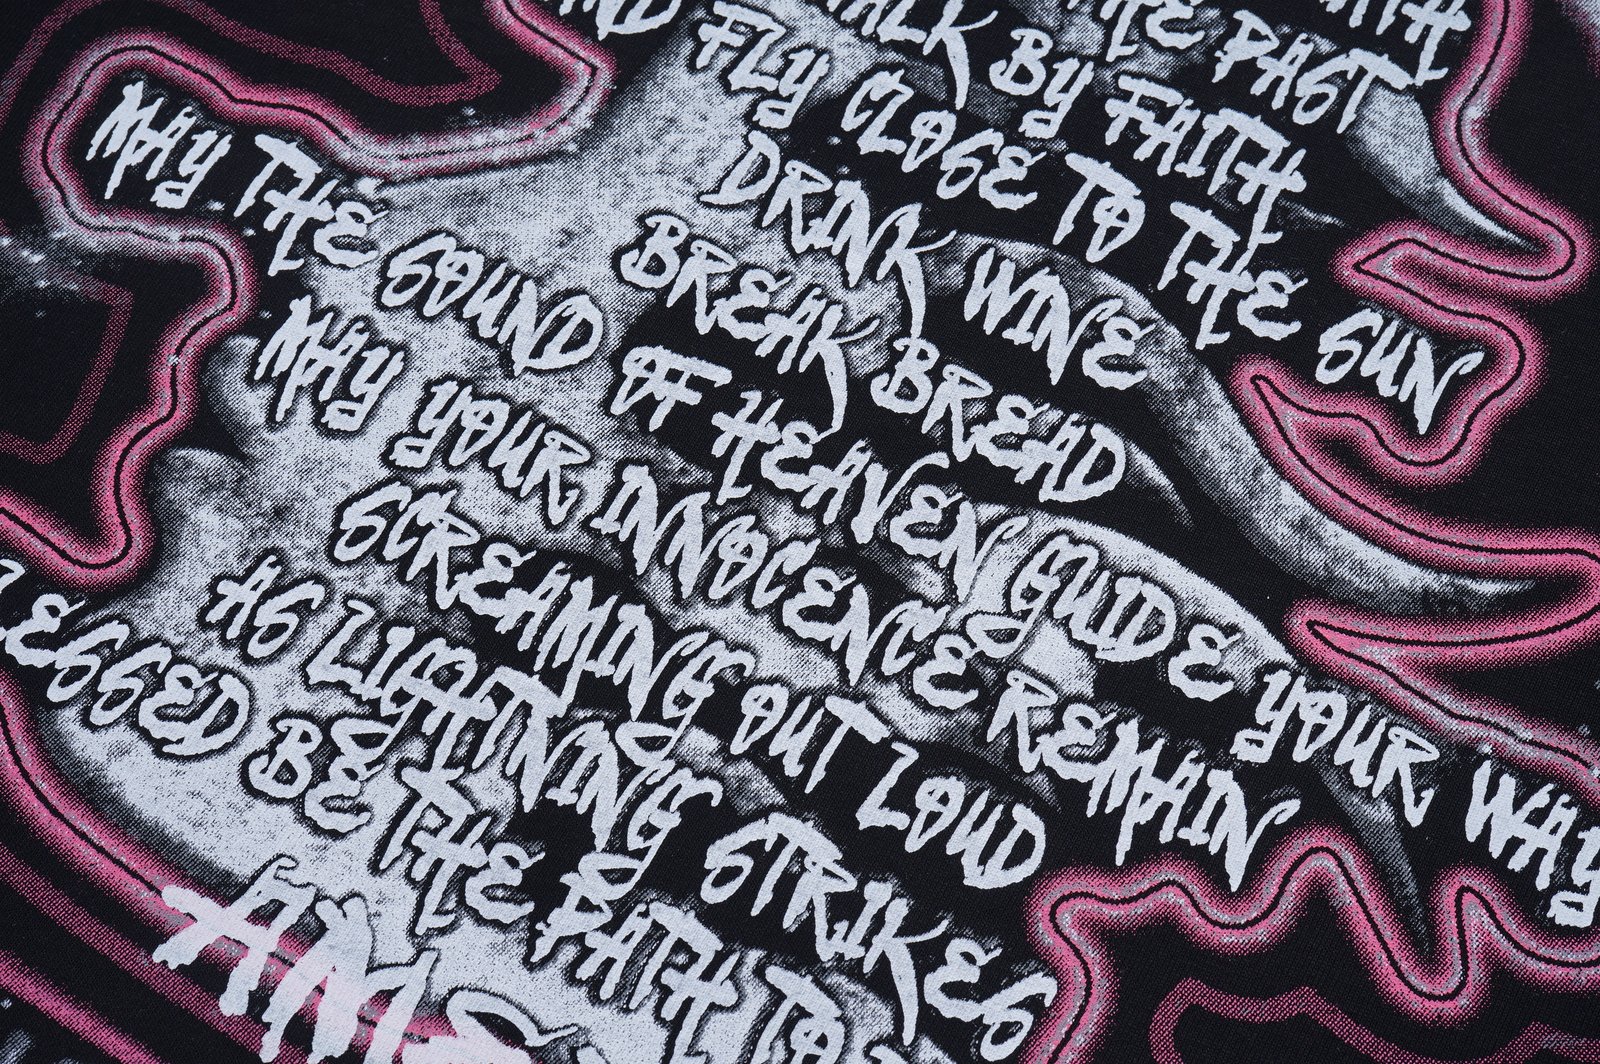 PAST
WALK BY FAITH
FLY CLOSE TO THE SUN
DRINK WINE
BREAK BREAD
MAY THE SOUND OF HEAVEN GUIDE YOUR WAY
MAY YOUR INNOCENCE REMAIN
SCREAMING OUT LOUD
AS LIGHTNING STRIKES
BLESSED BE THE PATH TO